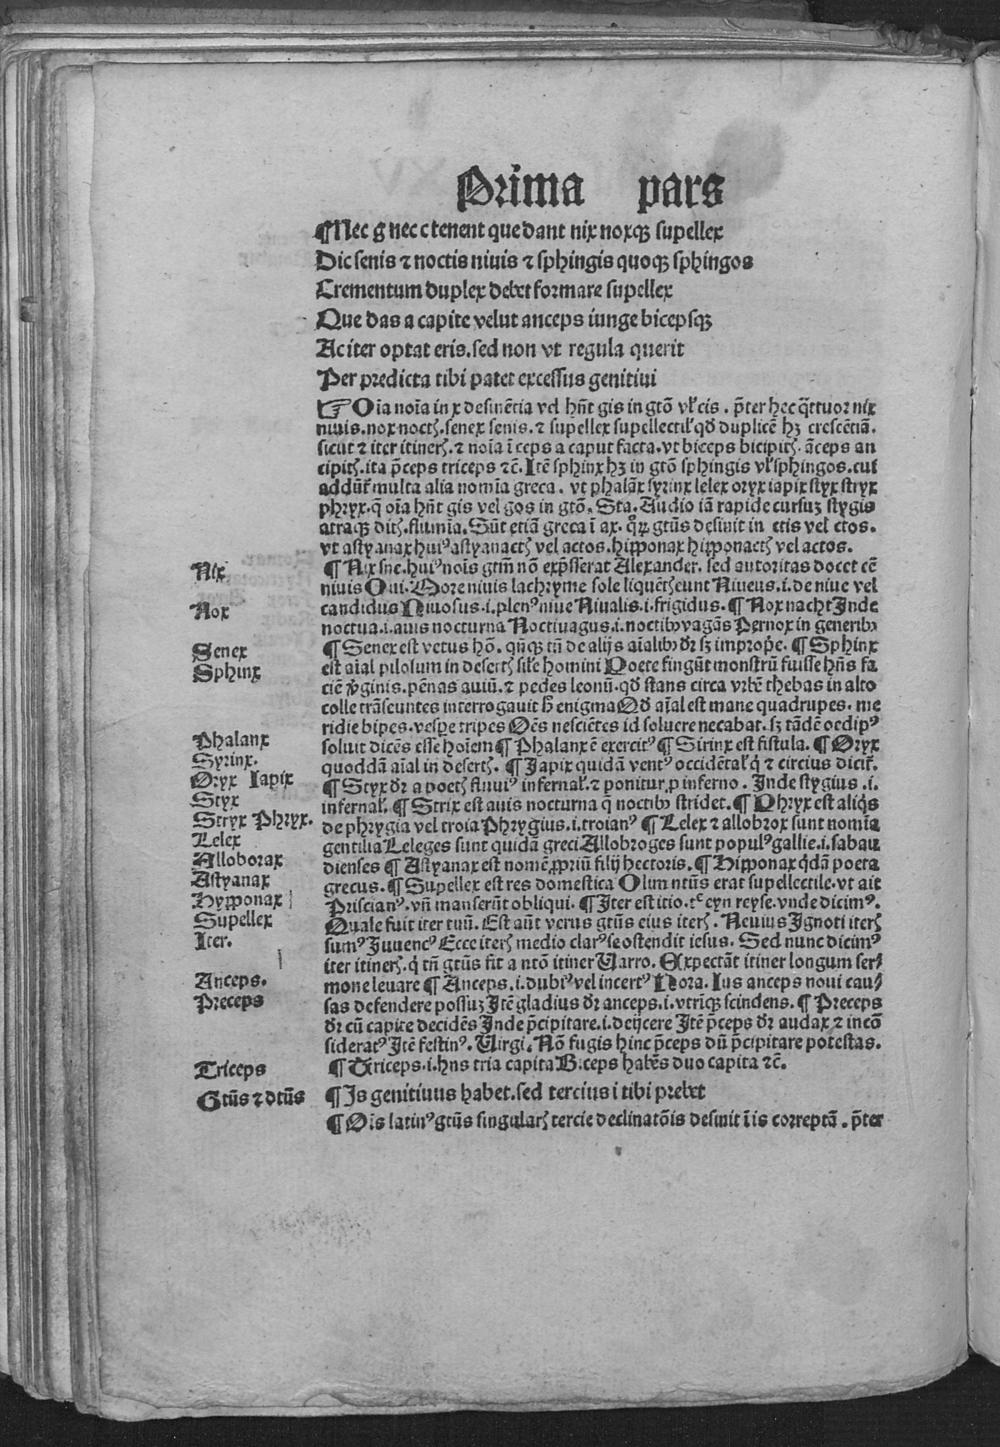 Prima pars
¶Nec g nec c tenent que dant nix noxqꝫ supellex
Dic senis ⁊ noctis niuis ⁊ sphingis quoqꝫ sphingos
Crementum duplex debet formare supellex
Que das a capite velut anceps iunge bicepsqꝫ
Ac iter optat eris. sed non vt regula querit
Per predicta tibi patet excessus genitiui
☞ Oīa noīa in x desinētia vel hn̄t gis in gtō vl' cis. p̄ter hec q̄ttuor nix
niuis. nox noctꝭ. senex senis. ⁊ supellex supellectil' qd̄ duplicē hꝫ crescētiā.
sicut ⁊ iter itinerꝭ. ⁊ noīa ī ceps a caput facta. vt biceps bicipitꝭ. āceps an
cipitꝭ. ita p̄ceps triceps ⁊c̄. Itē sphinx hꝫ in gtō sphingis vl' sphingos. cui
addūt᷑ multa alia nomīa greca. vt phalāx syrinx lelex oryx iapix styx stryx
phryx. q̄ oīa hn̄t gis vel gos in gtō. Sta. Audio iā rapide cursuꝫ stygis
atraqꝫ ditꝭ. flumīa. Sūt etiā greca ī ax. qͦꝝ gtūs desinit in ctis vel ctos.
vt astyanax huiꝰ astyanactꝭ vel actos. hipponax hipponactꝭ vel actos.
Nix
¶ Nix sn̄e. huiꝰ noīs gtm̄ nō exp̄sserat Alexander. sed autoritas docet eē
niuis Oui. More niuis lachryme sole liquētꝭ eunt Niueus .i. de niue vel
Nox
candidus Niuosus .i. plenꝰ niue Niualis .i. frigidus. ¶ Nox nacht Inde
noctua .i. auis nocturna Noctiuagus .i. noctibꝫ vagās Pernox in generibꝫ
Senex
¶ Senex est vetus hō. qn̄qꝫ tn̄ de alijs aīalibꝫ dr̄ sꝫ improp̄e. ¶ Sphinx
Sphinx
est aīal pilosum in desertꝭ sil'e homini Poete fingūt monstrū fuisse hn̄s fa
ciē v̄ginis. pēnas auiū. ⁊ pedes leonū. qd̄ stans circa vrbē thebas in alto
colle trāseuntes interrogauit h̄ enigma Qd̄ aīal est mane quadrupes. me
ridie bipes. vespe tripes Oēs nesciētes id soluere necabat. sꝫ tādē oedipꝰ
Phalanx
soluit dicēs esse hoīem ¶ Phalanx ē exercitꝰ ¶ Sirinx est fistula. ¶ Oryx
Syrinx.
quoddā aīal in desertꝭ. ¶ Japix quidā ventꝰ occidētal' q̄ ⁊ circius dicit᷑.
Oryx Iapix
¶ Styx dr̄ a poetꝭ fluuiꝰ infernal'. ⁊ ponitur ꝓ inferno. Inde stygius .i.
Styx
infernal'. ¶ Strix est auis nocturna q̄ noctibꝫ stridet. ¶ Phryx est aliq̄s
Stryx Phryx.
de phrygia vel troia Phrygius .i. troianꝰ ¶ Lelex ⁊ allobrox sunt nomīa
Lelex
gentilia Leleges sunt quidā greci Allobroges sunt populꝰ gallie .i. sabau
Alloborax
dienses ¶ Astyanax est nomē ꝓpriū filij hectoris. ¶ Hipponax q̄dā poeta
Astyanax
grecus. ¶ Supellex est res domestica Olim ntūs erat supellectile. vt ait
Hypponax
Priscianꝰ. vn̄ manserūt obliqui. ¶ Iter est itio. t᷑ eyn reyse. vnde dicimꝰ.
Supellex
Quale fuit iter tuū. Est aūt verus gtūs eius iterꝭ. Neuius Ignoti iterꝭ
Iter.
sumꝰ Juuencꝰ Ecce iterꝭ medio clarꝰ se ostendit iesus. Sed nunc dicimꝰ
iter itinerꝭ. q̄ tn̄ gtūs fit a ntō itiner Varro. Expectāt itiner longum ser⸗
Anceps.
mone leuare ¶ Anceps .i. dubiꝰ vel incertꝰ Hora. Ius anceps noui cau⸗
Preceps
sas defendere possuꝫ Itē gladius dr̄ anceps .i. vtrīqꝫ scindens. ¶ Preceps
dr̄ cū capite decidēs Inde p̄cipitare .i. deijcere Itē p̄ceps dr̄ audax ⁊ incō
sideratꝰ Itē festinꝰ. Virgi. Nō fugis hinc p̄ceps dū p̄cipitare potestas.
Triceps
¶ Triceps .i. hn̄s tria capita Biceps habēs duo capita ⁊c̄.
Gtūs ⁊ dtūs
¶ Is genitiuus habet. sed tercius i tibi prebet
¶ Oīs latinꝰ gtūs singularꝭ tercie declinatōis desinit ī is correptā. p̄ter